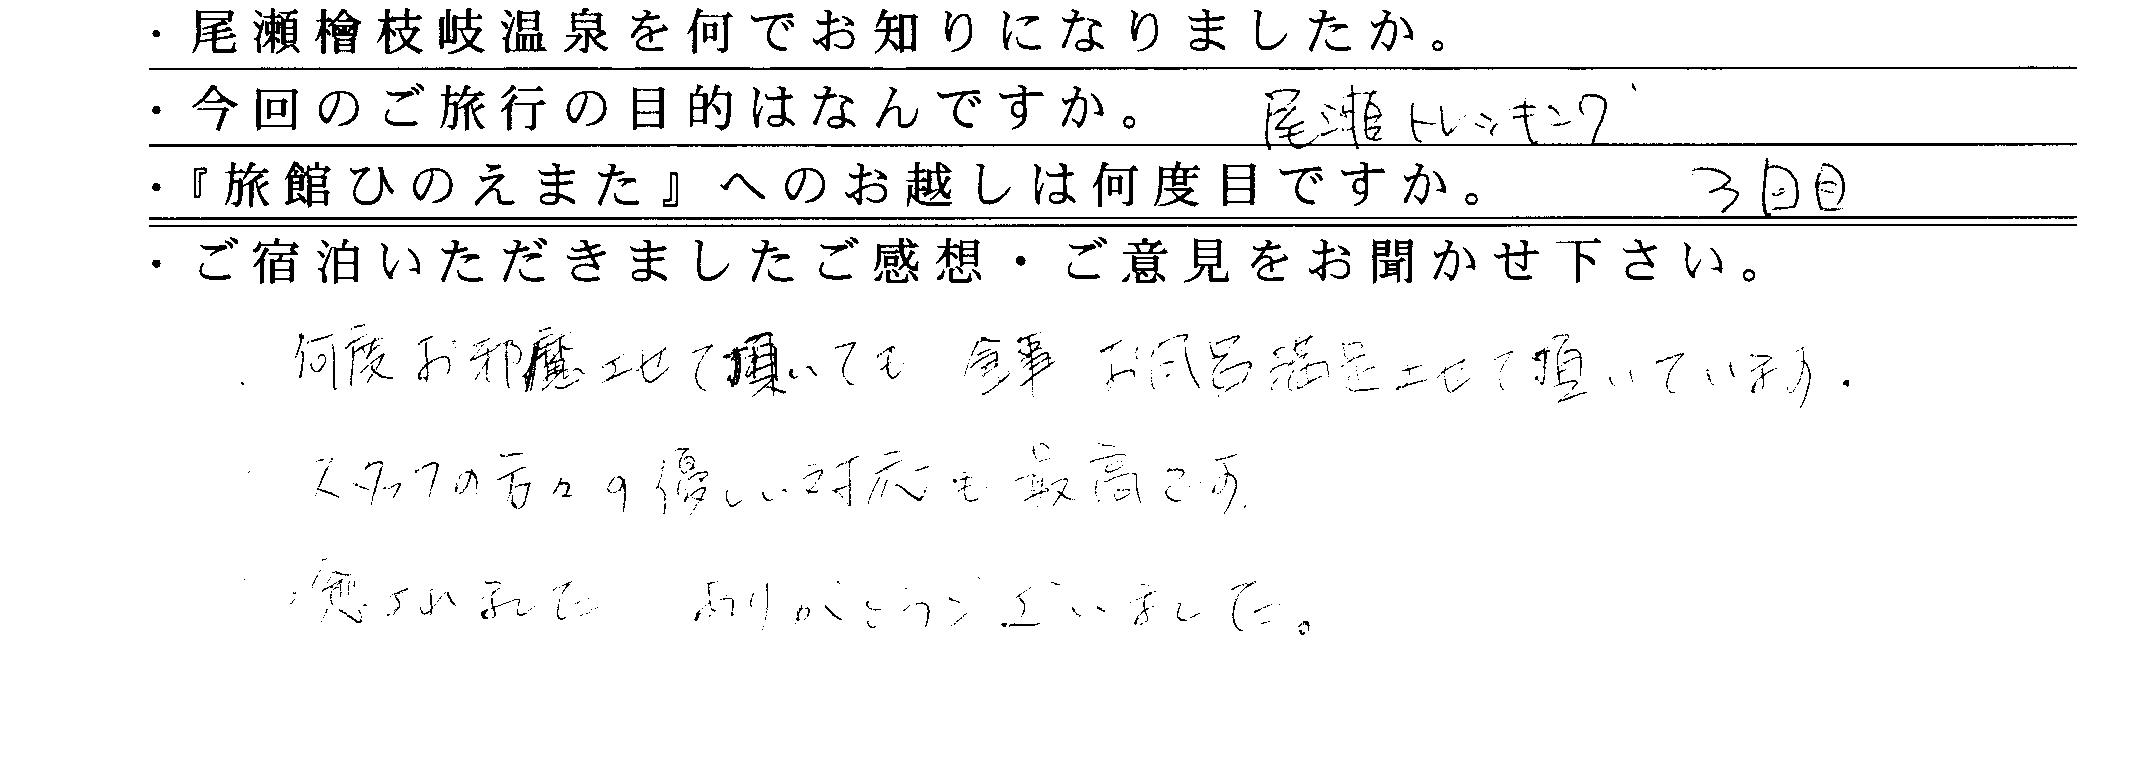 ・尾瀬檜枝岐温泉を何でお知りになりましたか。
・今回のご旅行の目的はなんですか。 尾瀬トレッキング
・『旅館ひのえまた』へのお越しは何度目ですか。 3回目
・ご宿泊いただきましたご感想・ご意見をお聞かせ下さい。
・何度お邪魔させて頂いても 食事 お風呂満足させて頂いています.
・スタッフの方々の優しい対応も最高です.
・癒されました ありがとうございました。